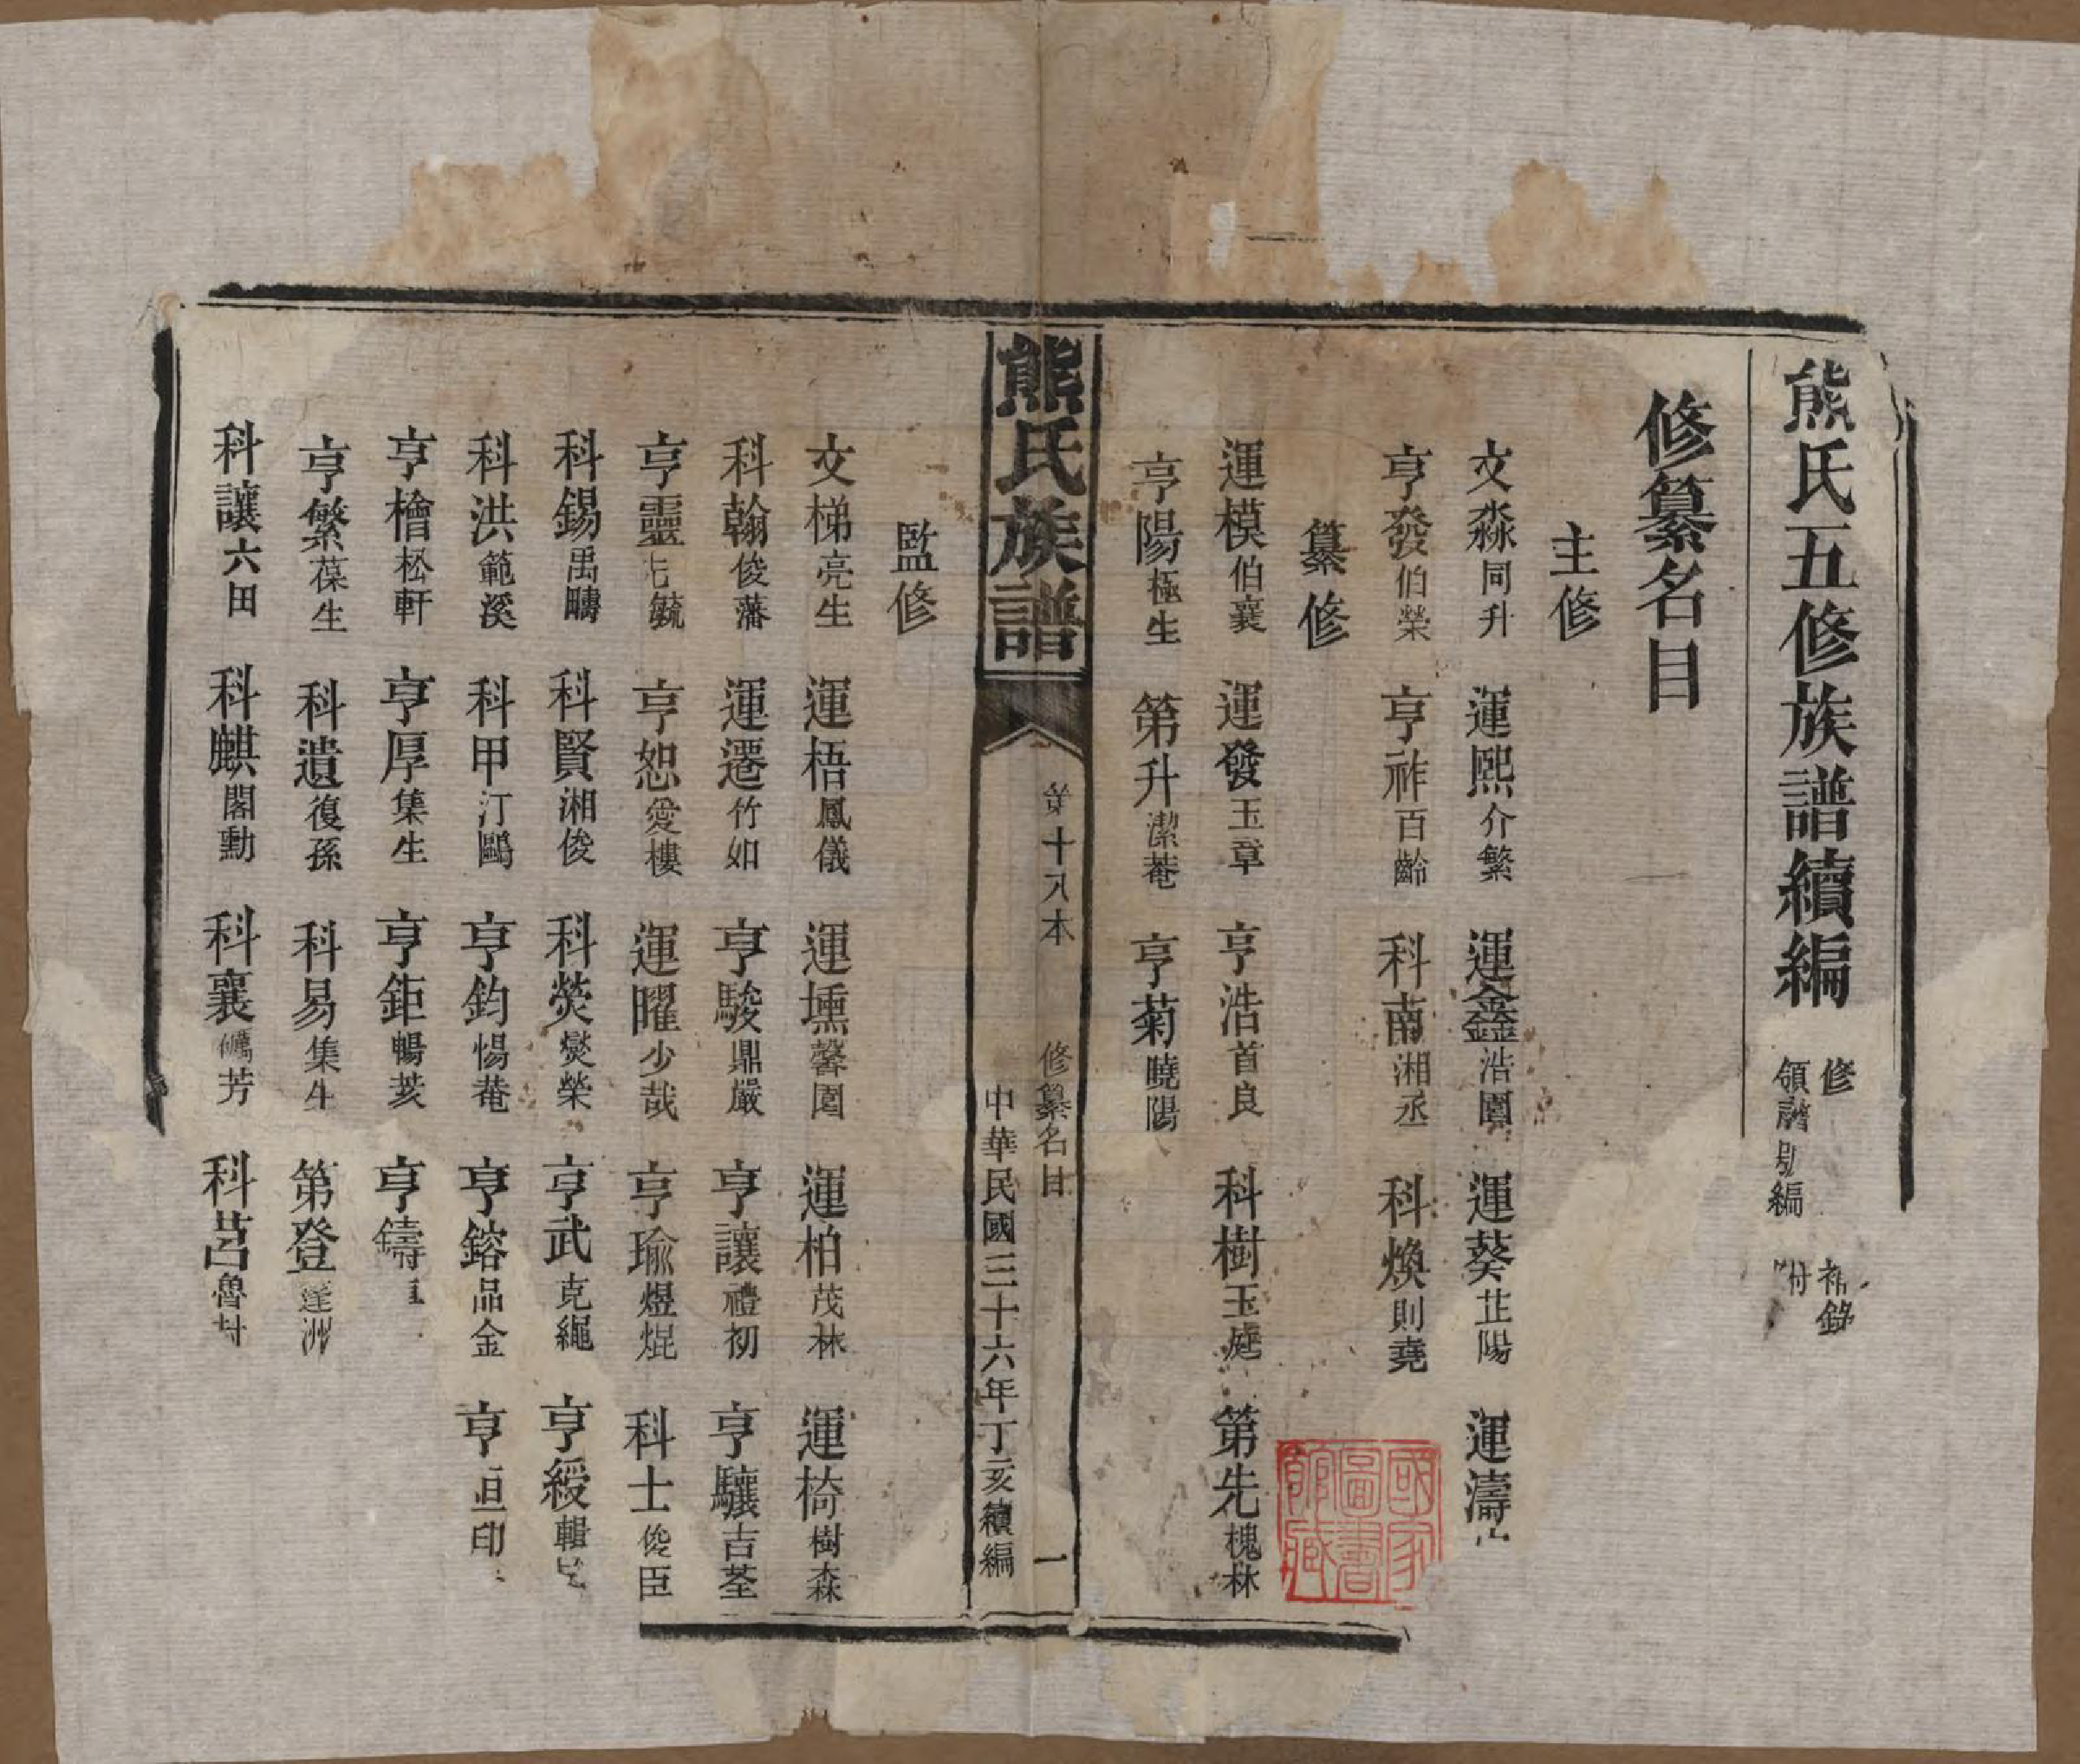 熊氏五修族譜續編 修 補錄 領譜別編 附
修纂名目
主修
文淼同升 運熙介繁 運鑫浩園 運葵芷陽 運濤
亨發伯榮 亨祚百齡 科萳湘丞 科煥則堯
纂修
運模伯襄 運發玉章 亨浩首良 科樹玉庭 第先槐林
亨陽極生 第升潔菴 亨菊曉陽
熊氏族譜 第十八本 修纂名目 一
中華民國三十六年丁亥續編
監修
文梯亮生 運梧鳳儀 運壎馨園 運柏茂林 運椅樹森
科翰俊藩 運遷竹如 亨駿鼎嚴 亨讓禮初 亨驤吉荃
亨靈毓 亨恕愛樓 運曜少哉 亨瑜煜焜 科士俊臣
科錫禹疇 科賢湘俊 科熒燮榮 亨武克繩 亨綬輯
科洪範溪 科甲汀鷗 亨鈞惕菴 亨鎔品金 亨
亨檜松軒 亨厚集生 亨鉅暢荄 亨鑄
亨繁葆生 科遺復孫 科易集生 第登蓬洲
科讓六田 科麒閣勳 科襄芳 科莒魯封
國家圖書館藏